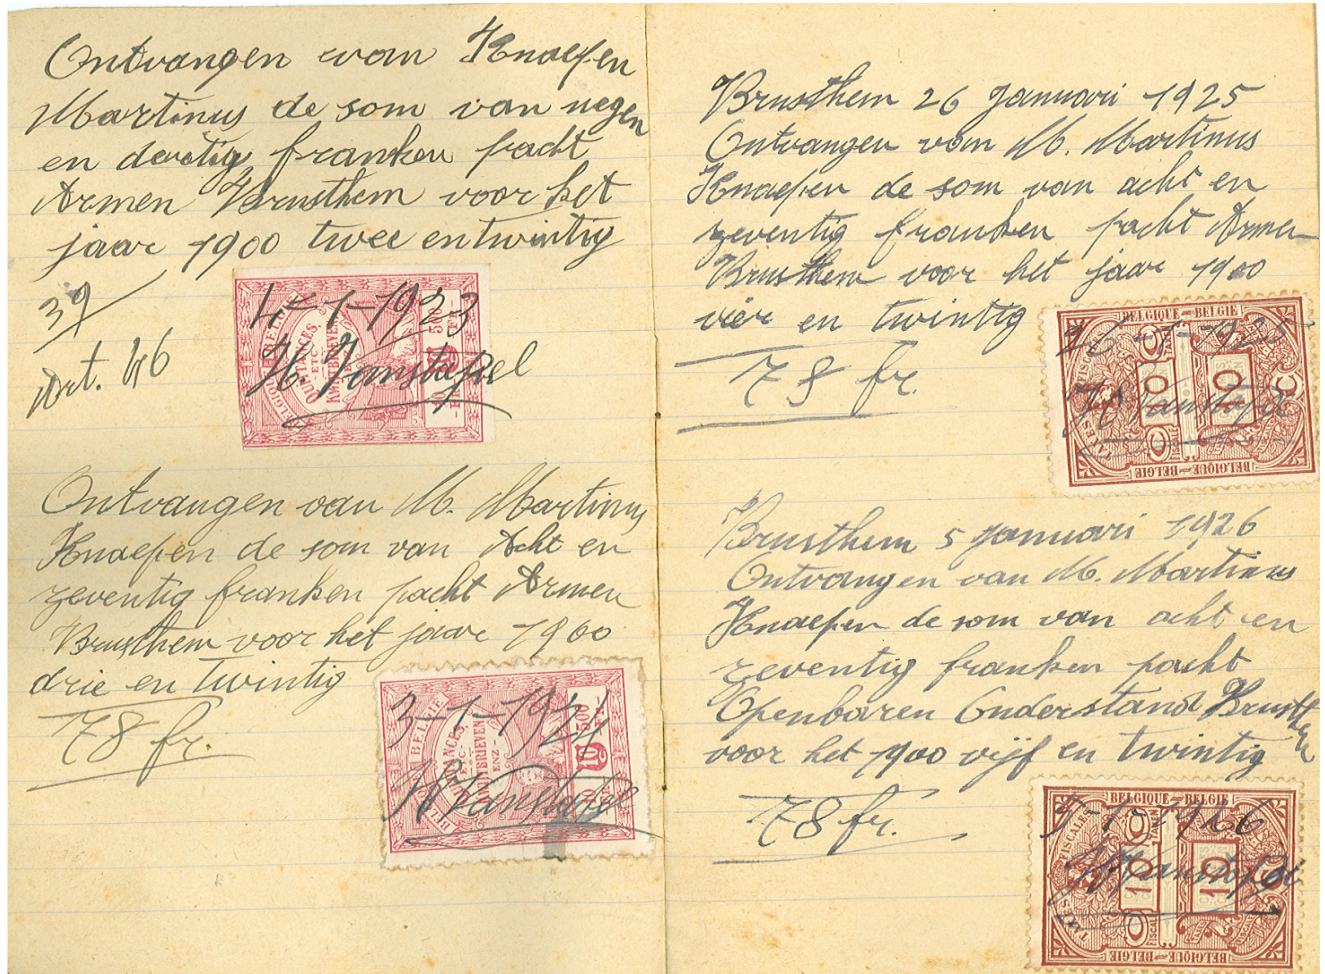 Ontvangen van Knaepen
Martinus de som van negen
en dertig franken pacht
Armen Brusthem voor het
jaar 1900 twee en twintig
39
Art. 46
4-1-1923
H. Vanstapel
BELGIQUE
QUITTANCES
ETC
KWITBRIEVEN
10
Ontvangen van M. Martinus
Knaepen de som van Acht en
zeventig franken pacht Armen
Brusthem voor het jaar 1900
drie en twintig
78 fr.
3-1-1924
BELGIË
QUITTANCES
ETC
KWITBRIEVEN
ENZ
10
HVanstapel
Brusthem 26 Januari 1925
Ontvangen van M. Martinus
Knaepen de som van acht en
zeventig franken pacht Armen
Brusthem voor het jaar 1900
vier en twintig
78 fr.
BELGIQUE-BELGIE
26-1-1925
10 10
HVanstapel
BELGIQUE-BELGIE
Brusthem 5 Januari 1926
Ontvangen van M. Martinus
Knaepen de som van acht en
zeventig franken pacht
Openbaren Onderstand Brusthem
voor het 1900 vijf en twintig
78 fr.
BELGIQUE-BELGIE
5-1-1926
10 10
HVanstapel
BELGIQUE-BELGIE